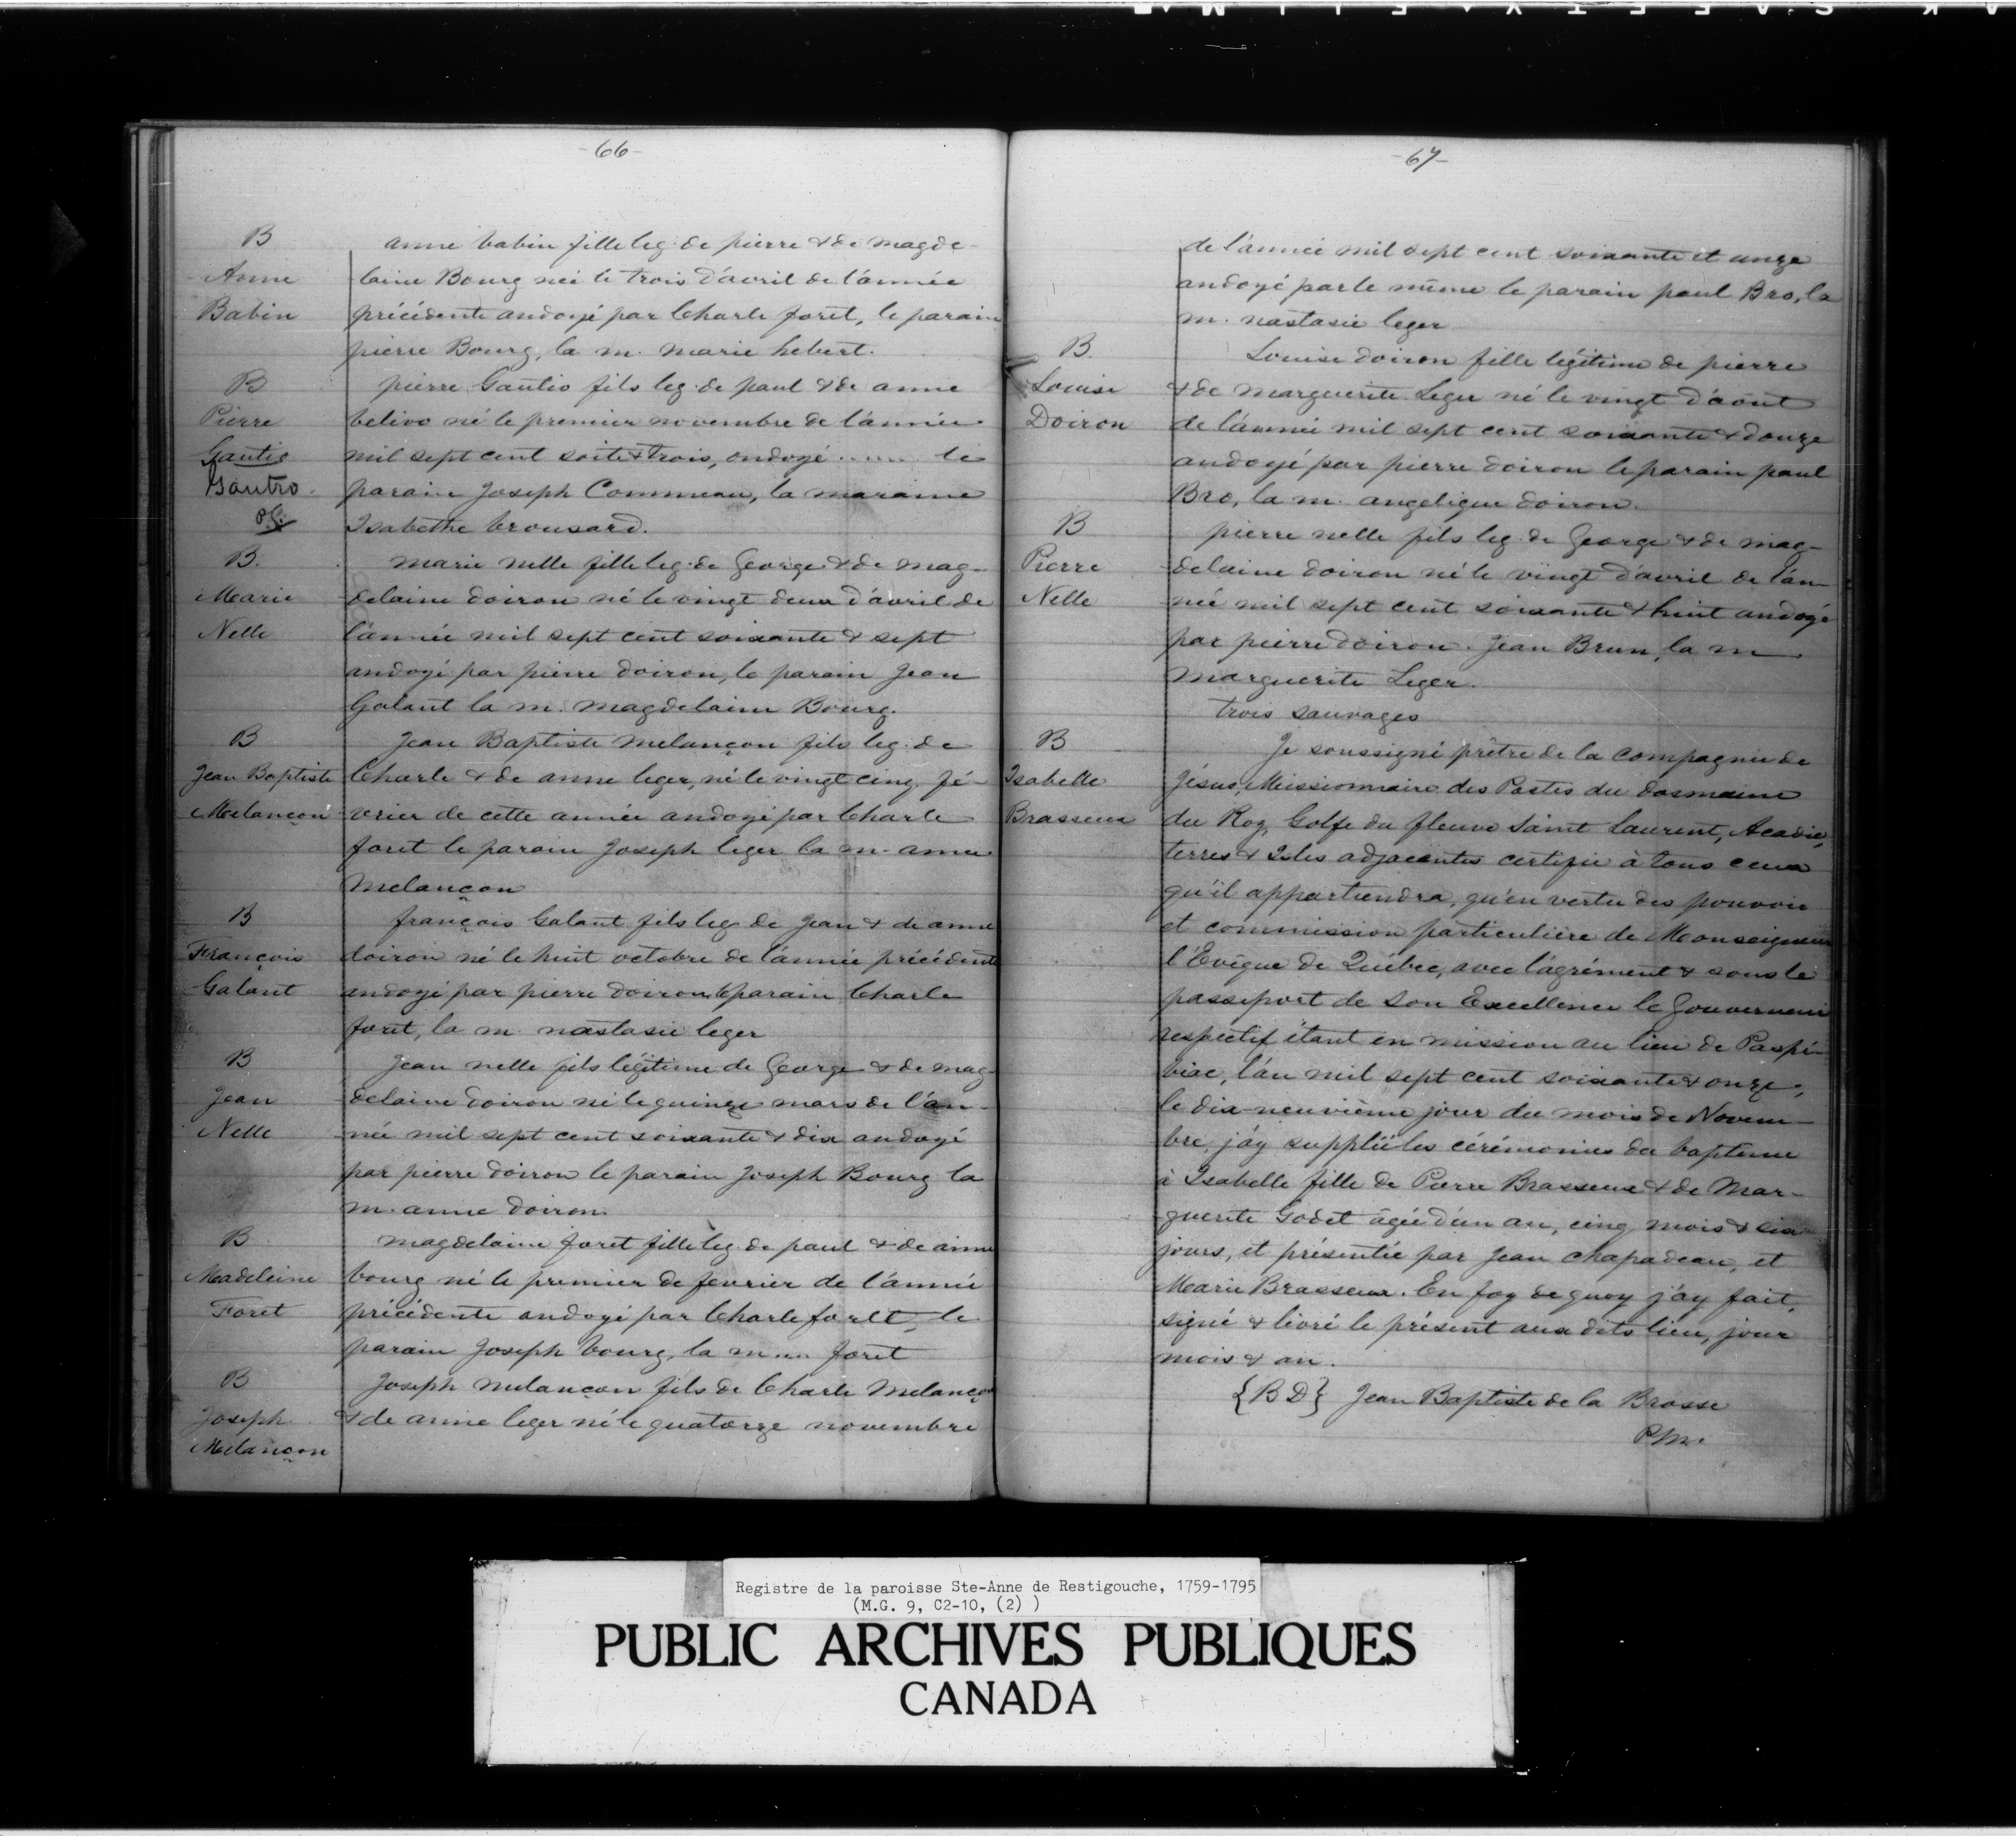 -66-
B
Anne
Babin
anne babin fille leg. de pierre & de magde-
laine Bourg née le trois d'avril de l'année
précédente andoyé par Charle foret, le parain
pierre Bourg, la m. marie hebert.
B
Pierre
Gautio
Gautro
pierre Gautio fils leg. de paul & de anne
belivo né le premier novembre de l'année
mil sept cent soite & trois, ondoyé ...... le
parain Joseph Commeau, la maraine
Isabethe brousard.
B.
Marie
Nelle
marie nelle fille leg. de George & de mag-
delaine doiron né le vingt deux d'avril de
l'année mil sept cent soixante & sept
andoyé par pierre doiron, le parain Jean
Galant la m. magdelaine Bourg.
B
Jean Baptiste
Melançon
Jean Baptiste melançon fils leg. de
Charle & de anne leger, né le vingt cinq fé-
vrier de cette année andoyé par Charle
foret le parain Joseph leger la m. anne
melançon
B
François
Galant
françois Galant fils leg. de Jean & de anne
doiron né le huit octobre de l'année précédente
andoyé par pierre doiron le parain Charle
foret, la m. nastasie leger
B
Jean
Nelle
Jean nelle fils légitime de George & de mag-
delaine doiron né le quinze mars de l'an-
née mil sept cent soixante & dix andoyé
par pierre doiron le parain Joseph Bourg la
m. anne doiron.
B
Madeleine
Foret
magdelaine foret fille leg. de paul & de anne
bourg né le premier de fevrier de l'année
précédente andoyé par Charle forlt, le
parain Joseph bourg, la m .... foret
B
Joseph
Melançon
Joseph melançon fils de Charle Melançon
& de anne leger né le quatorze novembre
-67-
de l'année mil sept cent soixante et unze
andoyé par le même le parain paul Bro, la
m. nastasie leger
B.
Louise
Doiron
Louise doiron fille légitime de pierre
& de marguerite Leger né le vingt d'août
de l'année mil sept cent soixante & douze
andoyé par pierre doiron le parain paul
Bro, la m. angelique doiron.
B
Pierre
Nelle
pierre nelle fils leg. de George & de mag-
delaine doiron né le vingt d'avril de l'an-
née mil sept cent soixante & huit andoyé
par pierre doiron. Jean Brun, la m
marguerite Leger.
trois sauvages
B
Isabelle
Brasseux
Je soussigné prêtre de la compagnie de
Jésus, Missionnaire des Postes du dosmaine
du Roy, Golfe du fleuve Saint Laurent, Acadie,
terres & Isles adjacentes certifie à tous ceux
qu'il appartiendra, qu'en vertu des pouvoir
et commission particulière de Monseigneur
l'Evêque de Québec, avec l'agrément & sous le
passeport de Son Excellence le Gouverneur
respectif étant en mission au lieu de Paspé-
biac, l'an mil sept cent soixante & onze,
le dix-neuvième jour du mois de Novem-
bre, j'ay suppléé les cérémonies du baptême
à Isabelle fille de Pierre Brasseux & de Mar-
guerite Godet âgée d'un an, cinq mois & six
jours, et présentée par Jean Chapadeau, et
Marie Brasseux. En foy de quoy j'ay fait,
signé & livré le présent aux dits lieu, jour
mois & an.
{B D} Jean Baptiste de la Brosse
P.M.
Registre de la paroisse Ste-Anne de Restigouche, 1759-1795
(M.G. 9, C2-10, (2) )
PUBLIC ARCHIVES PUBLIQUES
CANADA